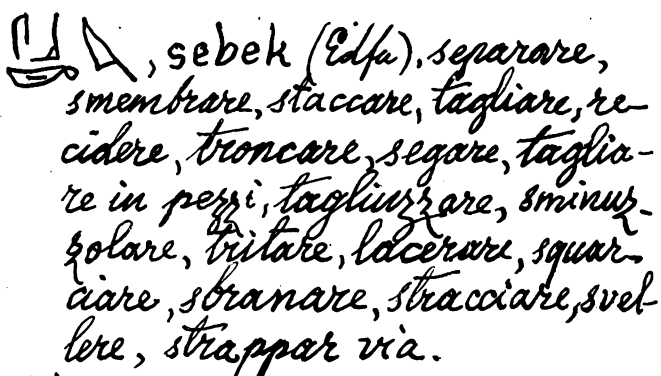 𓋴𓃀𓎡𓌪, sebek (Edfu). separare,
smembrare, staccare, tagliare, re-
cidere, troncare, segare, taglia-
re in pezzi, tagliuzzare, sminuz-
zolare, tritare, lacerare, squar-
ciare, sbranare, stracciare, svel-
lere, strappar via.